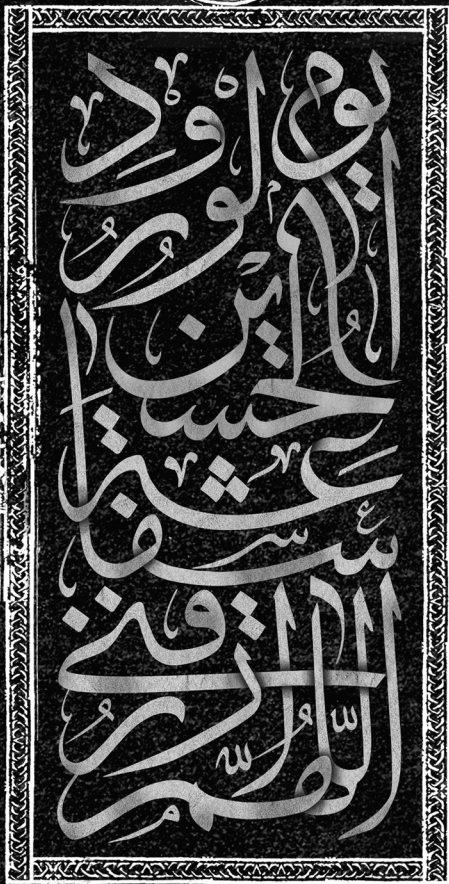 اللهم ارزقني
شفاعة
الحسين
يوم الورود